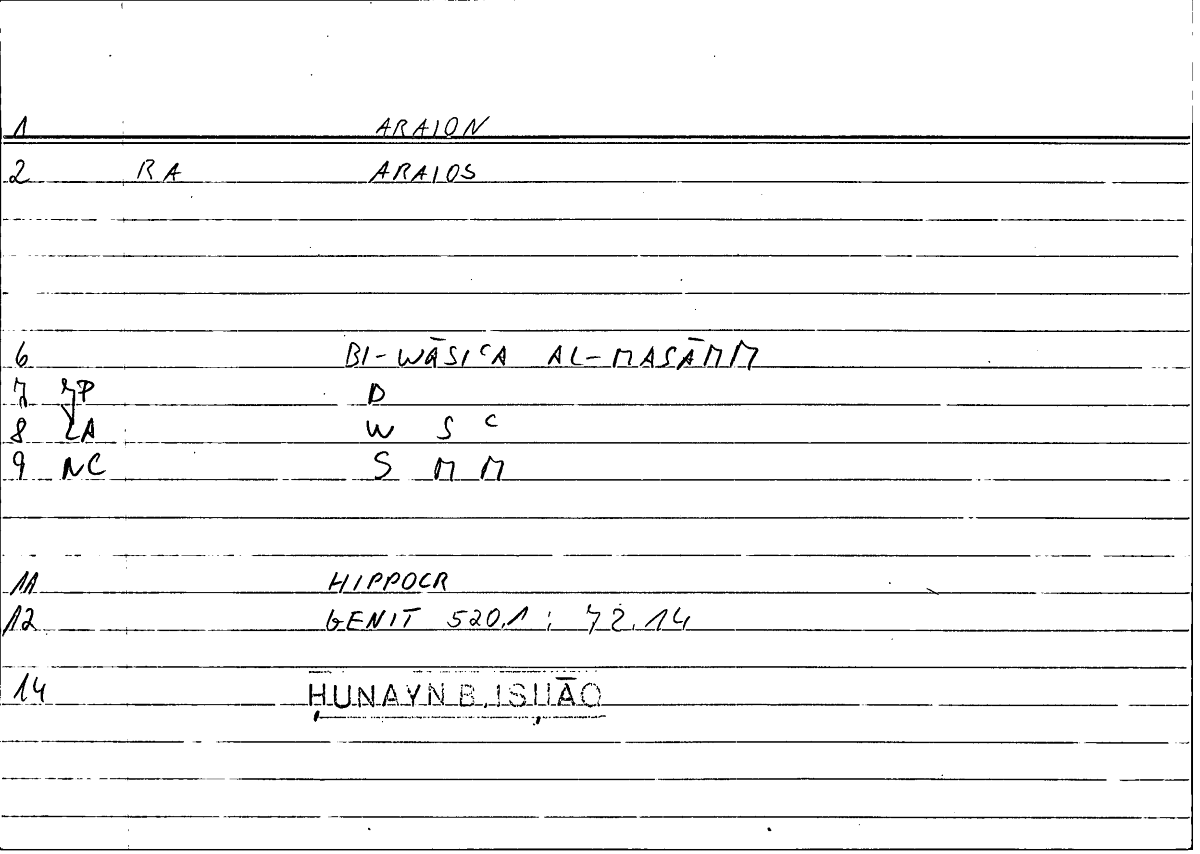 1 ARAION
2 RA ARAIOS
6 BI-WĀSIᶜA AL-MASĀMM
7 ZP D
8 ZA W S ᶜ
9 NC S M M
11 HIPPOCR
12 GENIT 520,1 ; 72,14
14 ḤUNAYN B. ISḤĀQ